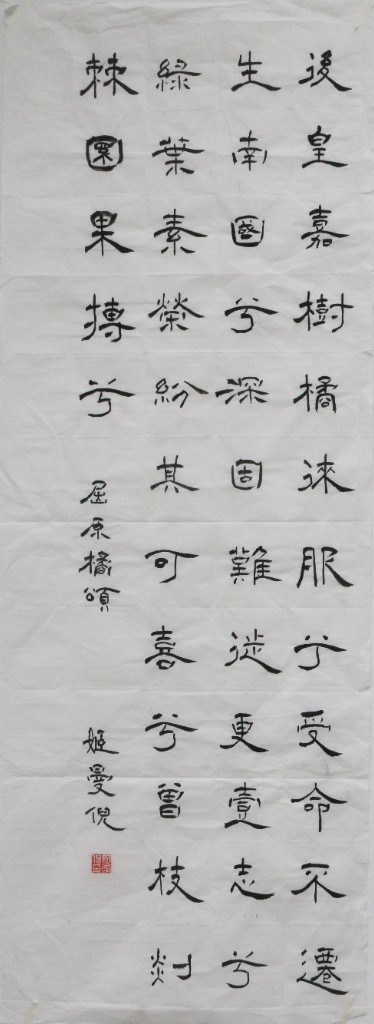 後皇嘉樹橘徠服兮受命不遷
生南國兮深固難徙更壹志兮
綠葉素榮紛其可喜兮曾枝剡
棘圜果摶兮
屈原橘頌
姬曼倪